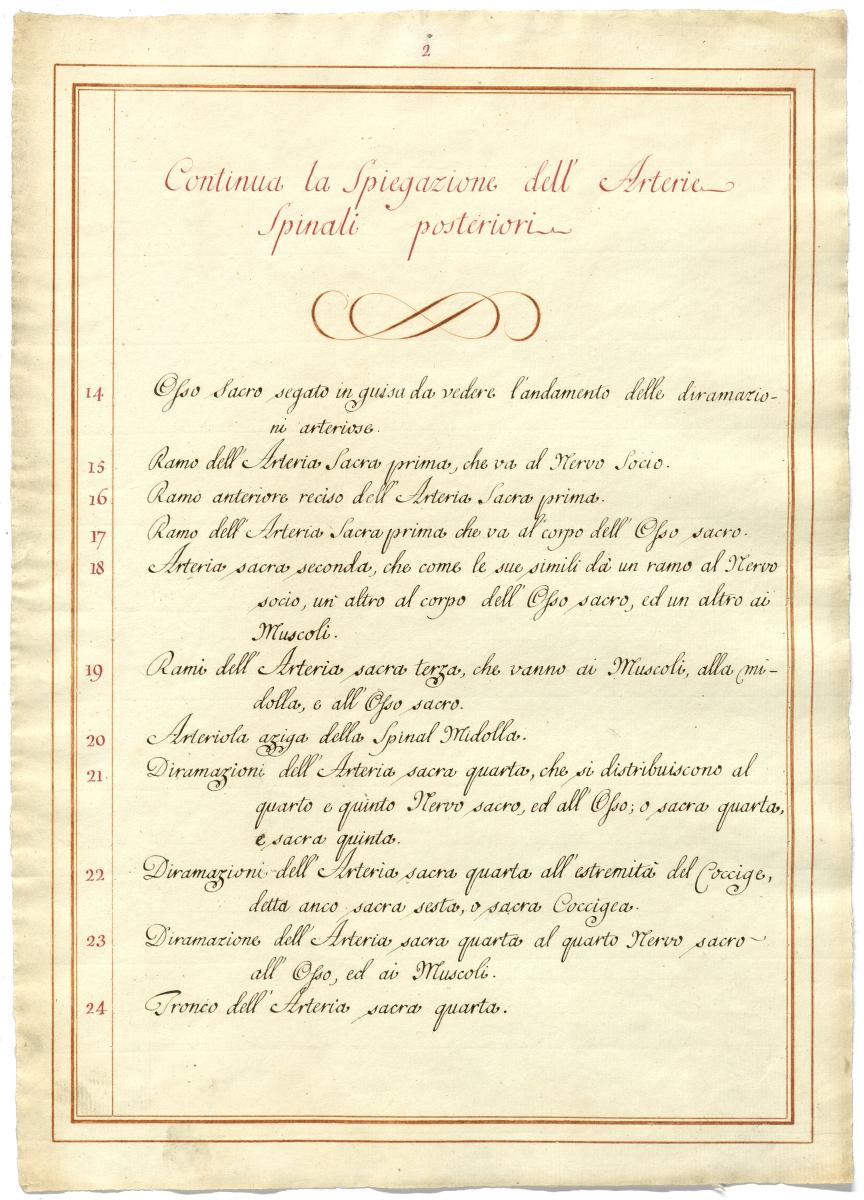 2
Continua la Spiegazione dell' Arterie
Spinali posteriori
14 Osso Sacro segato in guisa da vedere l'andamento delle diramazio-
ni arteriose.
15 Ramo dell'Arteria Sacra prima, che va al Nervo Socio.
16 Ramo anteriore reciso dell'Arteria Sacra prima.
17 Ramo dell'Arteria Sacra prima che va al corpo dell'Osso sacro.
18 Arteria sacra seconda, che come le sue simili dà un ramo al Nervo
socio, un altro al corpo dell'Osso sacro, ed un altro ai
Muscoli.
19 Rami dell'Arteria sacra terza, che vanno ai Muscoli, alla mi-
dolla, e all'Osso sacro.
20 Arteriola aziga della Spinal Midolla.
21 Diramazioni dell'Arteria sacra quarta, che si distribuiscono al
quarto e quinto Nervo sacro, ed all'Osso; o sacra quarta,
e sacra quinta.
22 Diramazioni dell'Arteria sacra quarta all'estremità del Coccige,
detta anco sacra sesta, o sacra Coccigea.
23 Diramazione dell'Arteria sacra quarta al quarto Nervo sacro
all'Osso, ed ai Muscoli.
24 Tronco dell'Arteria sacra quarta.